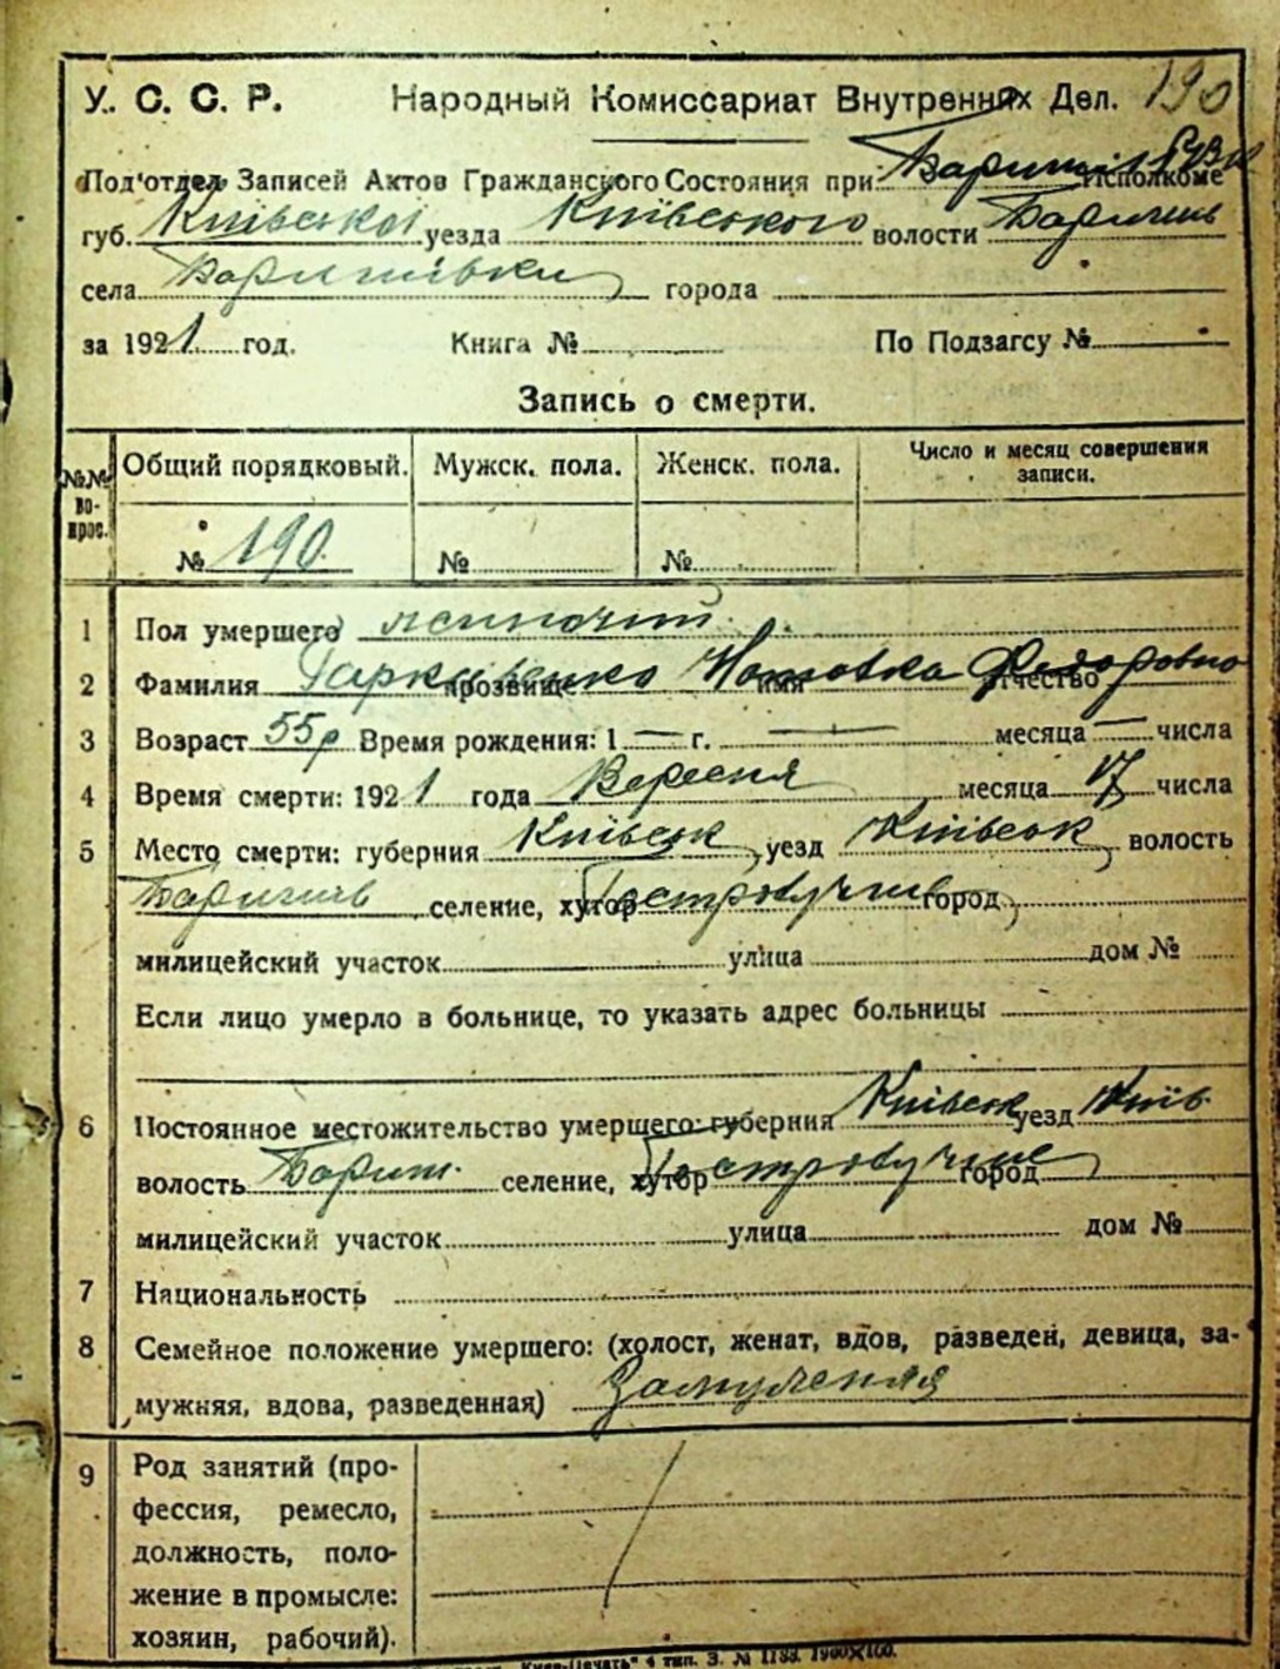 У. С. С. Р. Народный Комиссариат Внутренних Дел. 190
Под'отдел Записей Актов Гражданского Состояния при Исполкоме
губ. Київської уезда Київського волости Баришів
села Баришівки города
за 1921 год. Книга № По Подзагсу №
Запись о смерти.
№№ во-прос. Общий порядковый. Мужск. пола. Женск. пола. Число и месяц совершения записи.
№ 190. № №
1 Пол умершего жіночий
2 Фамилия прозвище имя отчество Федоровна
3 Возраст 55р Время рождения: 1 — г. — месяца — числа
4 Время смерти: 1921 года Вересня месяца 17 числа
5 Место смерти: губерния Київськ уезд Київськ волость
Баришів селение, хутор город
милицейский участок улица дом №
Если лицо умерло в больнице, то указать адрес больницы
6 Постоянное местожительство умершего: губерния Київськ уезд Київ
волость Бориш. селение, хутор город
милицейский участок улица дом №
7 Национальность
8 Семейное положение умершего: (холост, женат, вдов, разведен, девица, за-
мужняя, вдова, разведенная)
9 Род занятий (про-
фессия, ремесло,
должность, поло-
жение в промысле:
хозяин, рабочий).
"Киев-Печать" 4 тип. З. № 1183. 1900×100.